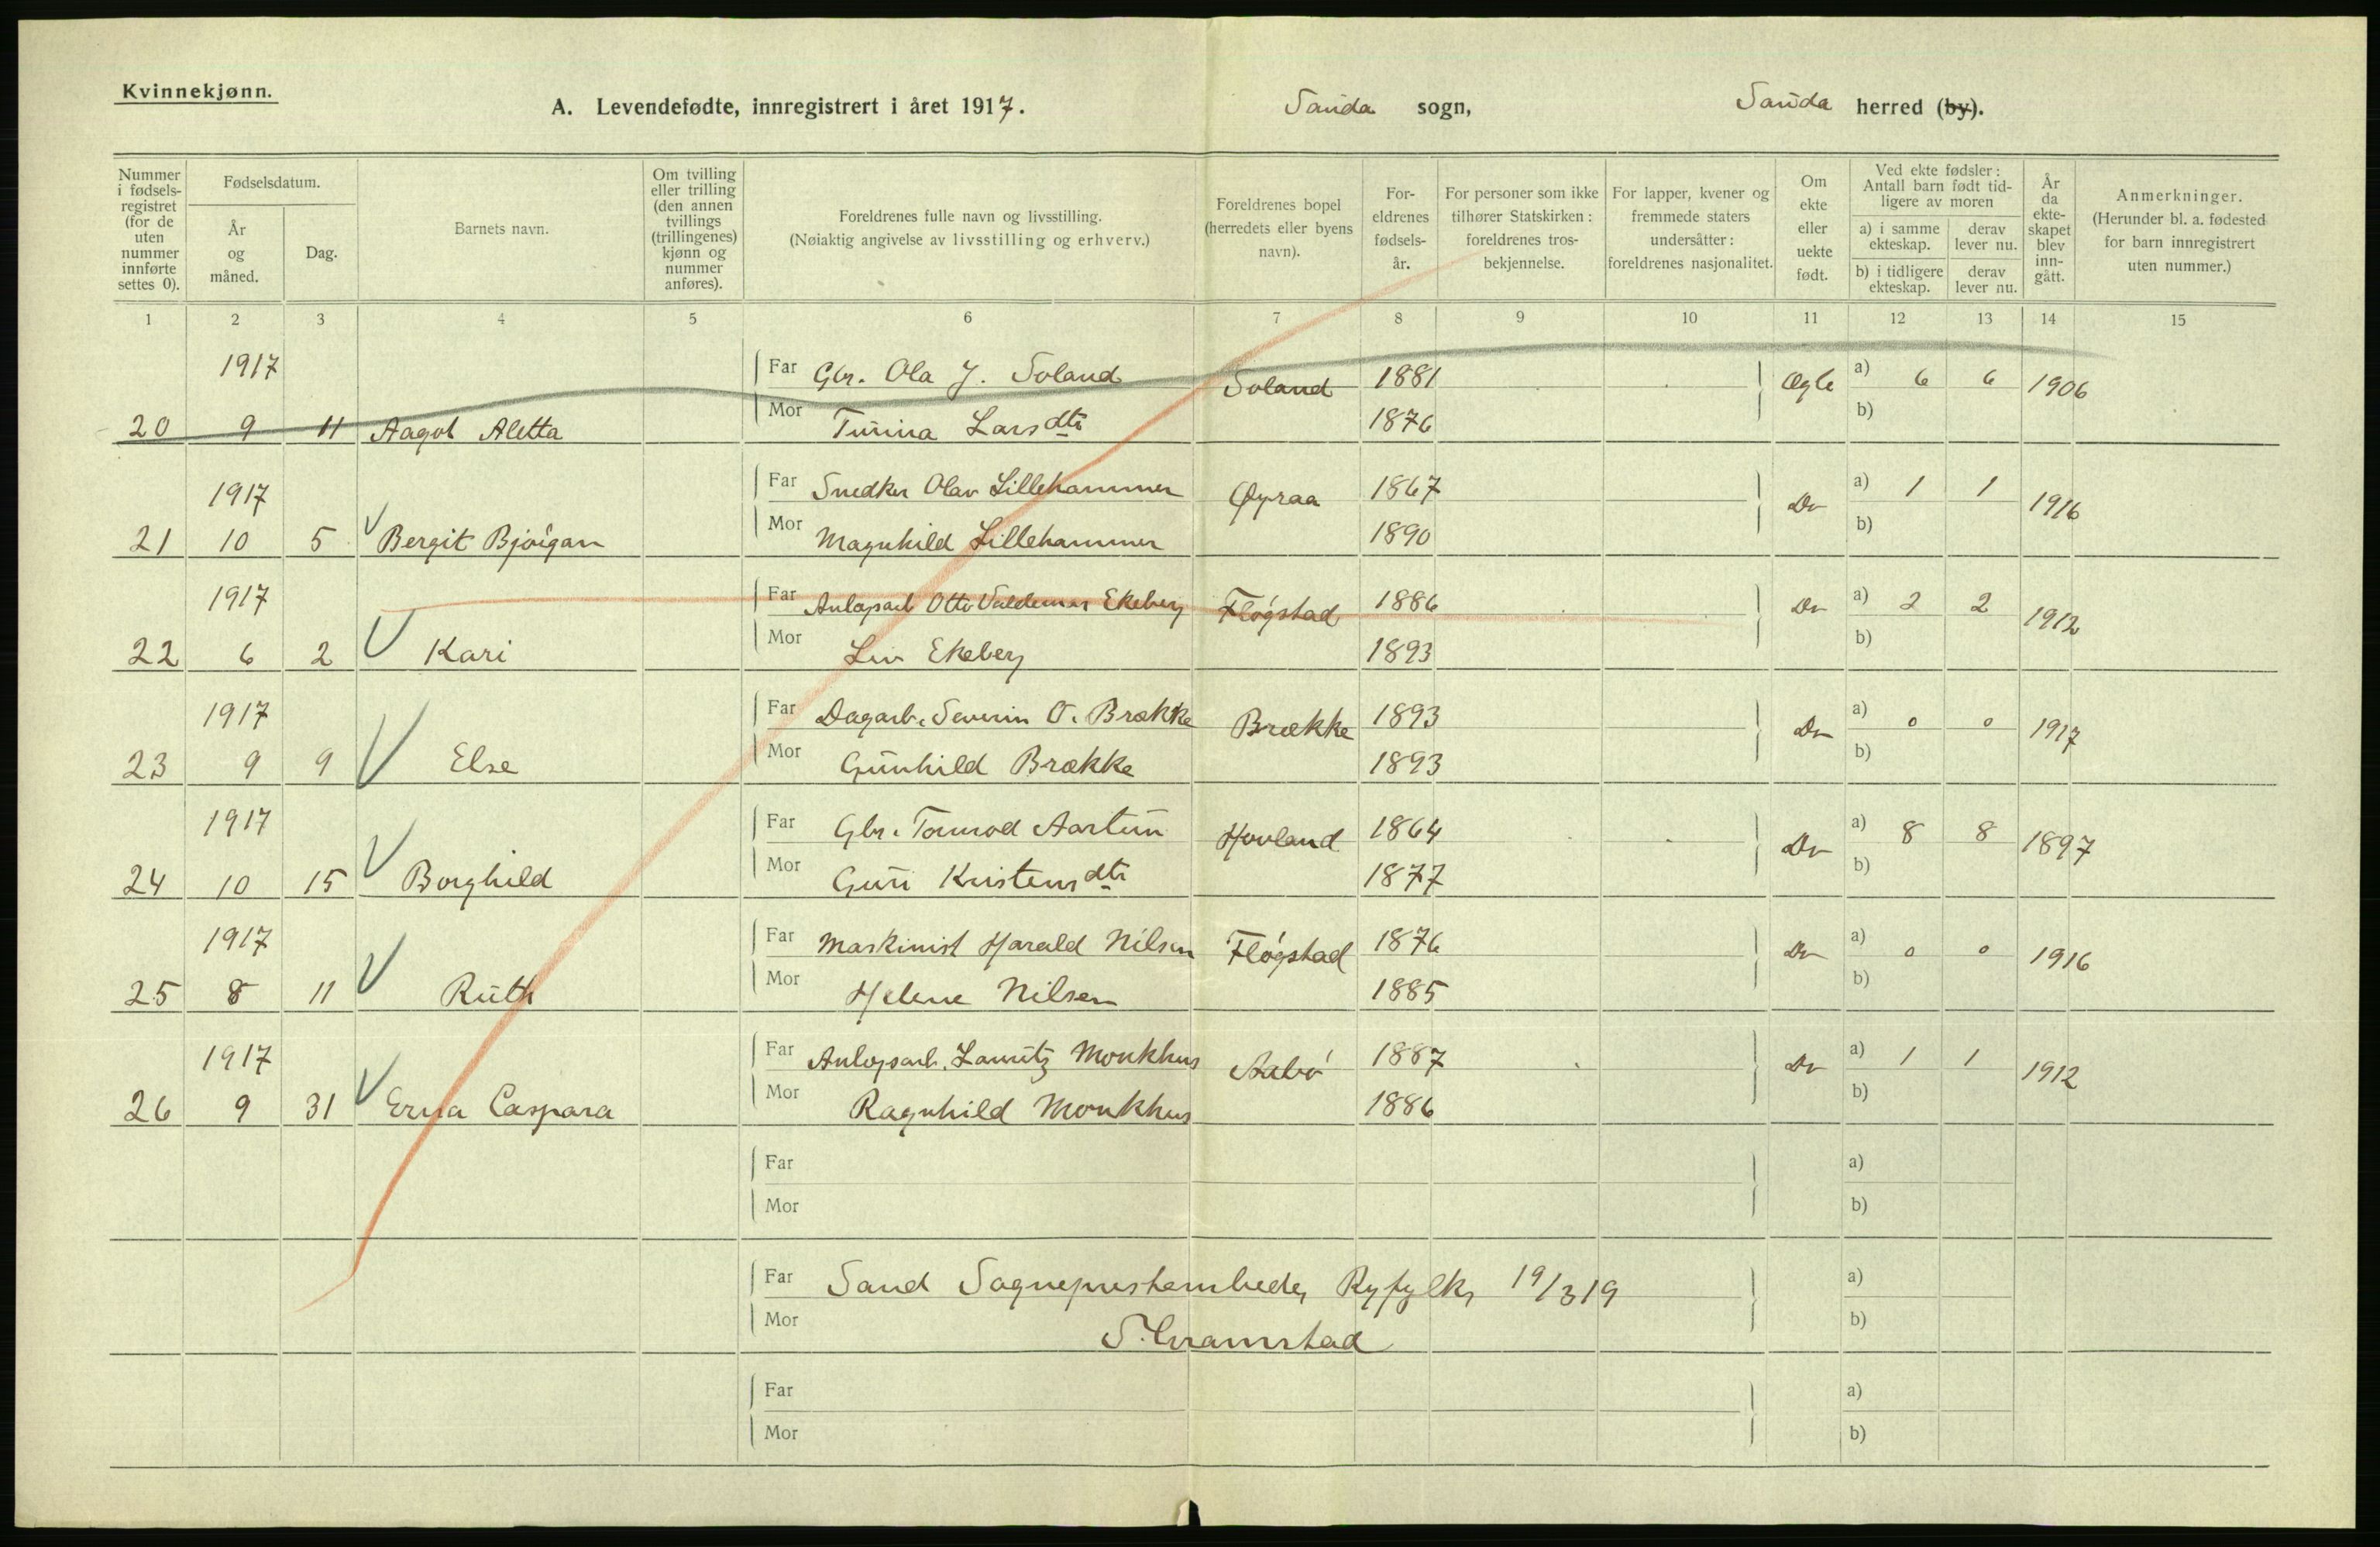 Kvinnekjønn.
A. Levendefødte, innregistrert i året 1917. Sauda sogn, Sauda herred (by).
Nummer i fødsels-registret (for de uten nummer innførte settes 0).
Fødselsdatum.
År og måned.
Dag.
Barnets navn.
Om tvilling eller trilling (den annen tvillings (trillingenes) kjønn og nummer anføres).
Foreldrenes fulle navn og livsstilling.
(Nøiaktig angivelse av livsstilling og erhverv.)
Foreldrenes bopel (herredets eller byens navn).
For-eldrenes fødsels-år.
For personer som ikke tilhører Statskirken: foreldrenes tros-bekjennelse.
For lapper, kvener og fremmede staters undersåtter: foreldrenes nasjonalitet.
Om ekte eller uekte født.
Ved ekte fødsler: Antall barn født tid-ligere av moren
a) i samme ekteskap.
derav lever nu.
b) i tidligere ekteskap.
derav lever nu.
År da ekte-skapet blev inn-gått.
Anmerkninger.
(Herunder bl. a. fødested for barn innregistrert uten nummer.)
1 2 3 4 5 6 7 8 9 10 11 12 13 14 15
1917 Far Gbr. Ola J. Soland Soland 1881 Ægte a) 6 6 1906
20 9 11 Aagot Aletta Mor Turina Larsdtr 1876 b)
1917 Far Snedker Olav Lillehammer Øyraa 1867 Do a) 1 1 1916
21 10 5 Bergit Bjørgan Mor Magnhild Lillehammer 1890 b)
1917 Far Anlegsarb Otto Valdemar Ekeberg Fløgstad 1886 Do a) 2 2 1912
22 6 2 Kari Mor Liv Ekeberg 1893 b)
1917 Far Dagarb. Severin O. Brække Brække 1893 Do a) 0 0 1917
23 9 9 Else Mor Gunhild Brække 1893 b)
1917 Far Gbr. Tormod Aartun Hovland 1864 Do a) 8 8 1897
24 10 15 Borghild Mor Guri Kristensdtr 1877 b)
1917 Far Maskinist Harald Nilsen Fløgstad 1876 Do a) 0 0 1916
25 8 11 Ruth Mor Helene Nilsen 1885 b)
1917 Far Anlegsarb. Lauritz Monkhus Aabø 1887 Do a) 1 1 1912
26 9 31 Erna Caspara Mor Ragnhild Monkhus 1886 b)
Far a)
Mor b)
Far Sand Sogneprestembede, Ryfylke, 19/3 19 a)
Mor b)
Far a)
Mor b)